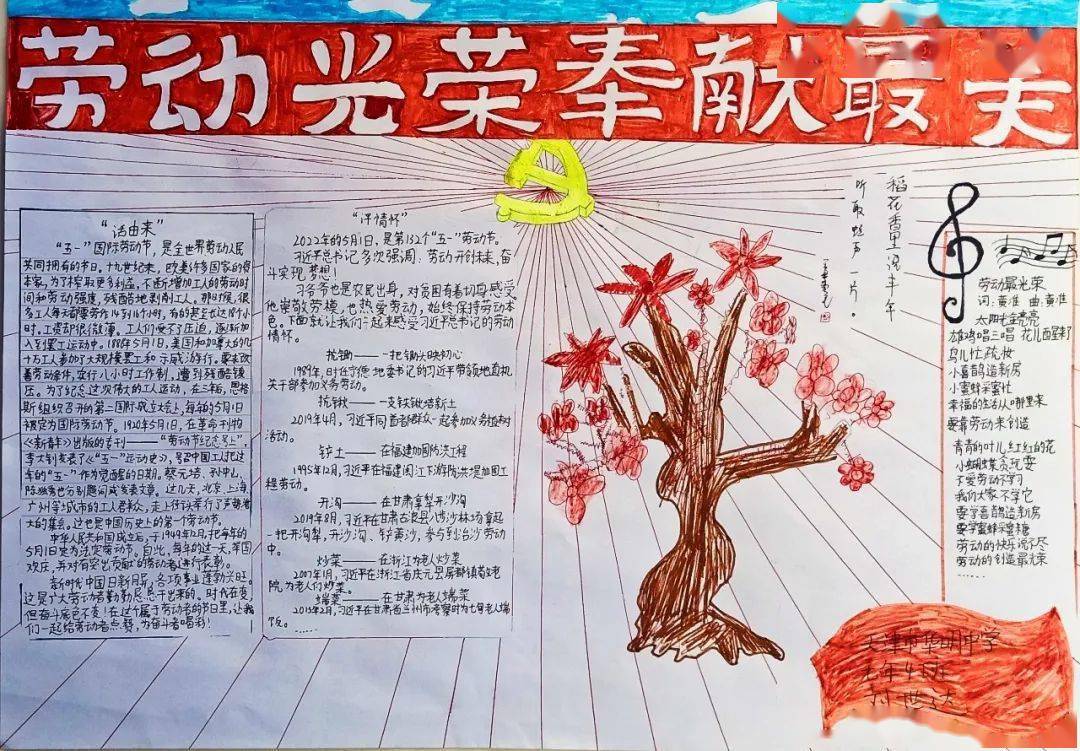 劳动光荣奉献最美
"话由来"
"五一"国际劳动节，是全世界劳动人民
共同拥有的节日。十九世纪末，欧美许多国家的资
本家，为了榨取更多利益，不断增加工人的劳动时
间和劳动强度，残酷地剥削工人。那时候，很
多工人每天都要劳作14到16个小时，有的甚至长达18个小
时，工资却很微薄。工人们受不了压迫，逐渐加
入到罢工运动中。1886年5月1日，美国和加拿大的几
十万工人参加了大规模罢工和示威游行。要求改
善劳动条件，实行八小时工作制，遭到残酷镇
压。为了纪念这次伟大的工人运动，在三年后，恩格
斯组织召开的第二国际成立大会上，每年的5月1日
被定为国际劳动节。1920年5月1日，在革命刊物
《新青年》出版的专刊——"劳动节纪念号上"，
李大钊发表了《"五一"运动史》，号召中国工人把这
年的"五一"作为觉醒的日期。蔡元培、孙中山、
陈独秀也分别题词或发表文章。这几天，北京、上海、
广州等城市的工人群众，走上街头举行了声势浩
大的集会。这也是中国历史上的第一个劳动节。
中华人民共和国成立后，于1949年12月，把每年的
5月1日定为法定劳动节。自此，每年的这一天，举国
欢庆，并对有突出贡献的劳动者进行表彰。
新时代中国日新月异，各项事业蓬勃兴旺。
这是广大劳动者勤勤恳恳干出来的。时代在变，
但奋斗底色不变！在这个属于劳动者的节日里，让我
们一起给劳动者点赞，为奋斗者喝彩！
"浮情怀"
2022年的5月1日，是第132个"五一"劳动节。
习近平总书记多次强调，劳动开创未来，奋
斗实现梦想！
习爷爷也是农民出身，对贫困有着切身感受。
他崇敬劳模，也热爱劳动，始终保持劳动本
色。下面就让我们一起来感受习近平总书记的劳动
情怀。
抗锄——一把锄头映初心
1989年，时任宁德地委书记的习近平带领地直机
关干部参加义务劳动。
扶锹——一支铁锹培新土
2019年4月，习近平同首都群众一起参加义务植树
活动。
铲土——在福建加固防洪工程
1995年12月，习近平在福建闽江下游防洪堤加固工
程劳动。
开沟——在甘肃拿犁开沙沟
2019年8月，习近平在甘肃古浪县八步沙林场拿起
一把开沟犁，开沙沟、铲黄沙，参与到治沙劳动
中。
炒菜——在浙江为老人炒菜
2007年1月，习近平在浙江省庆元县屏都镇敬老
院，为老人们炒菜。
端菜——在甘肃为老人端菜
2013年2月，习近平在甘肃省兰州市考察时为七旬老人端
饭。
……
稻花香里说丰年
听取蛙声一片。
劳动最光荣
词：黄准 曲：黄准
太阳光金亮亮
雄鸡唱三唱 花儿醒来了
鸟儿忙梳妆
小喜鹊造新房
小蜜蜂采蜜忙
幸福的生活从哪里来
要靠劳动来创造
青青的叶儿红红的花
小蝴蝶贪玩耍
不爱劳动不学习
我们大家不学它
要学喜鹊造新房
要学蜜蜂采蜜糖
劳动的快乐说不尽
劳动的创造最光荣
……
天津市华明中学
七年4班
孙世达